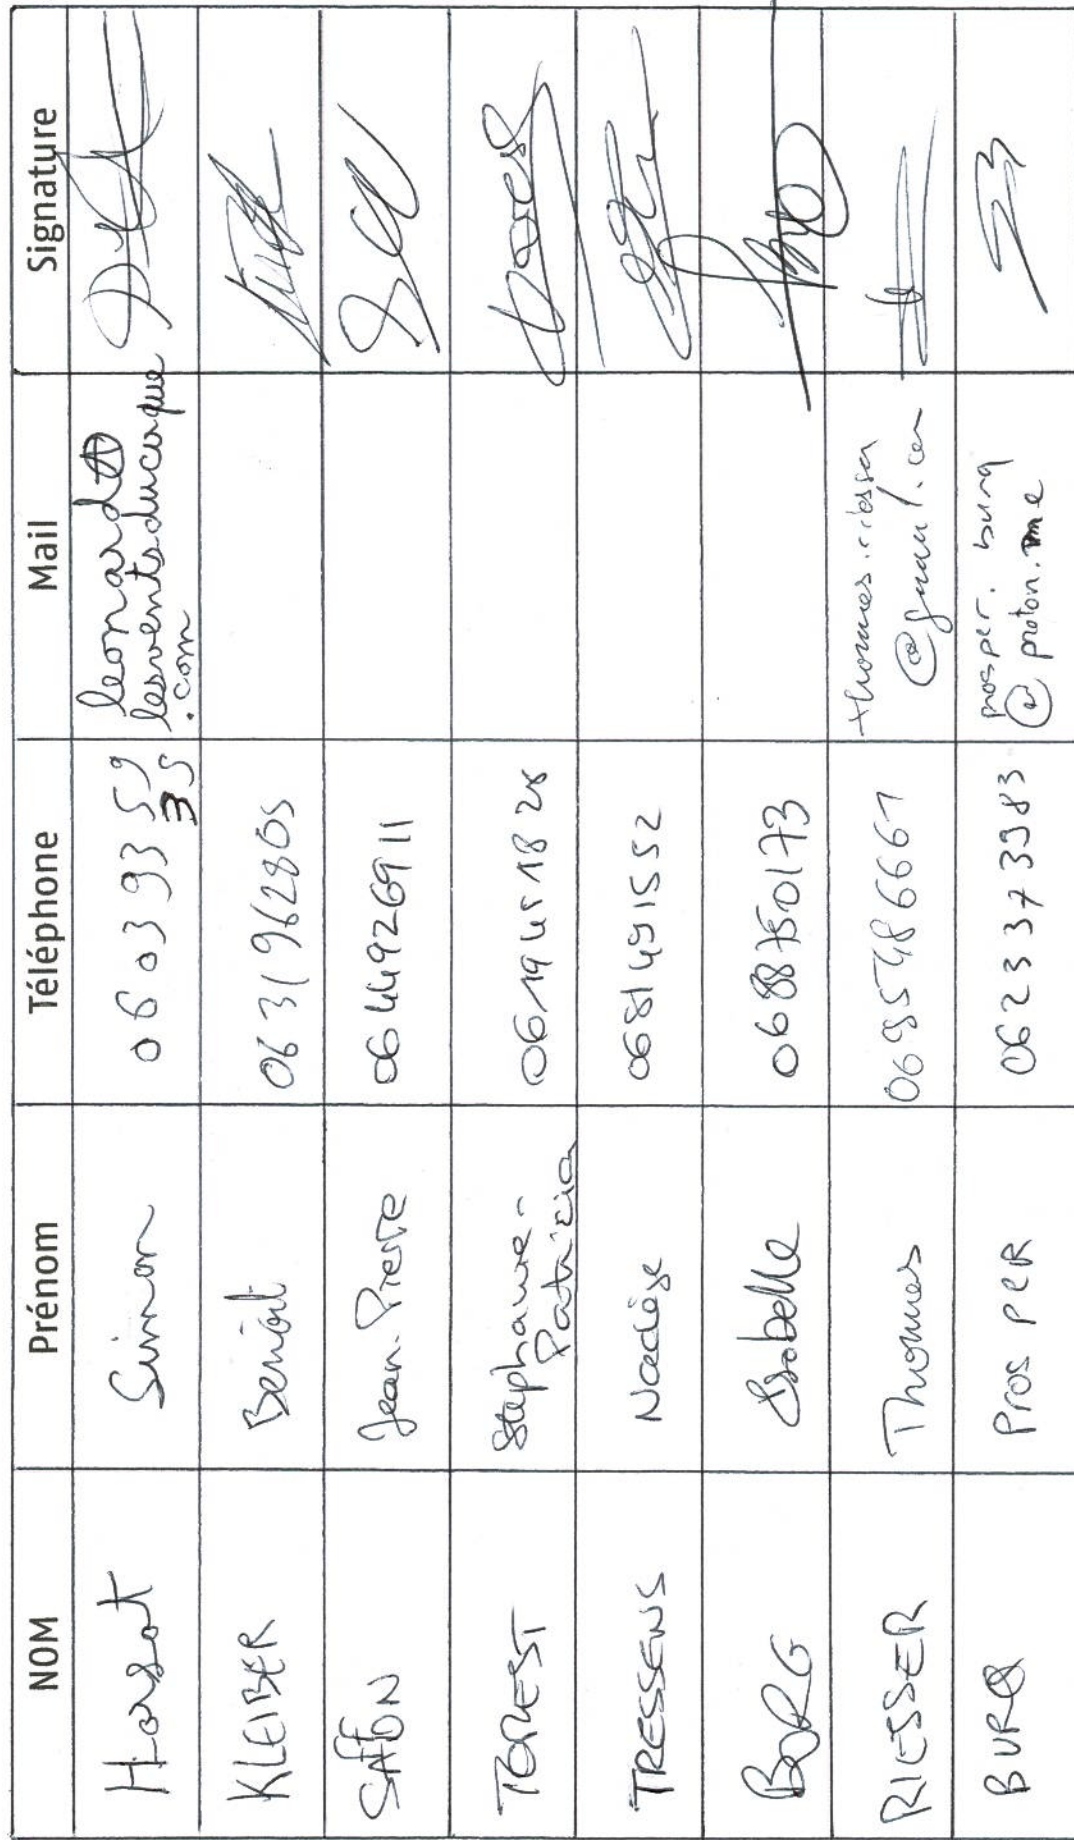 NOM Prénom Téléphone Mail Signature
Harsat Simon 06 03 93 59 35 leonard@
lesventsducirque
.com
KLEIBER Benoît 0631962805
SAFFON Jean-Pierre 0644926911
TOREST Stéphanie-
Patricia 0619451828
TRESSENS Nadège 0681491552
BORG Isabelle 0688750173
RIESSER Thomas 0695486661 thomas.riesser
@gmail.com
BURQ Prosper 0623373983 prosper.burq
@proton.me